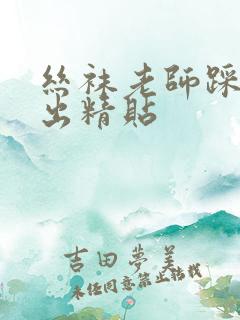 絲袜老師踩
出精貼
吉田夢美
未经同意禁止转载